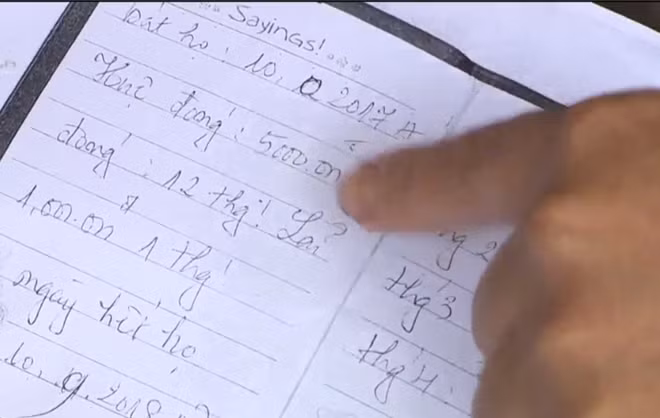 Sayings!
bắt họ: 10, 9 2017 A
đóng: 5000.00
đóng: 12 thg! Lời?
1,00.00 1 thg
ngày hết họ
10, 9.2018
thg 2
thg 3
thg 4: